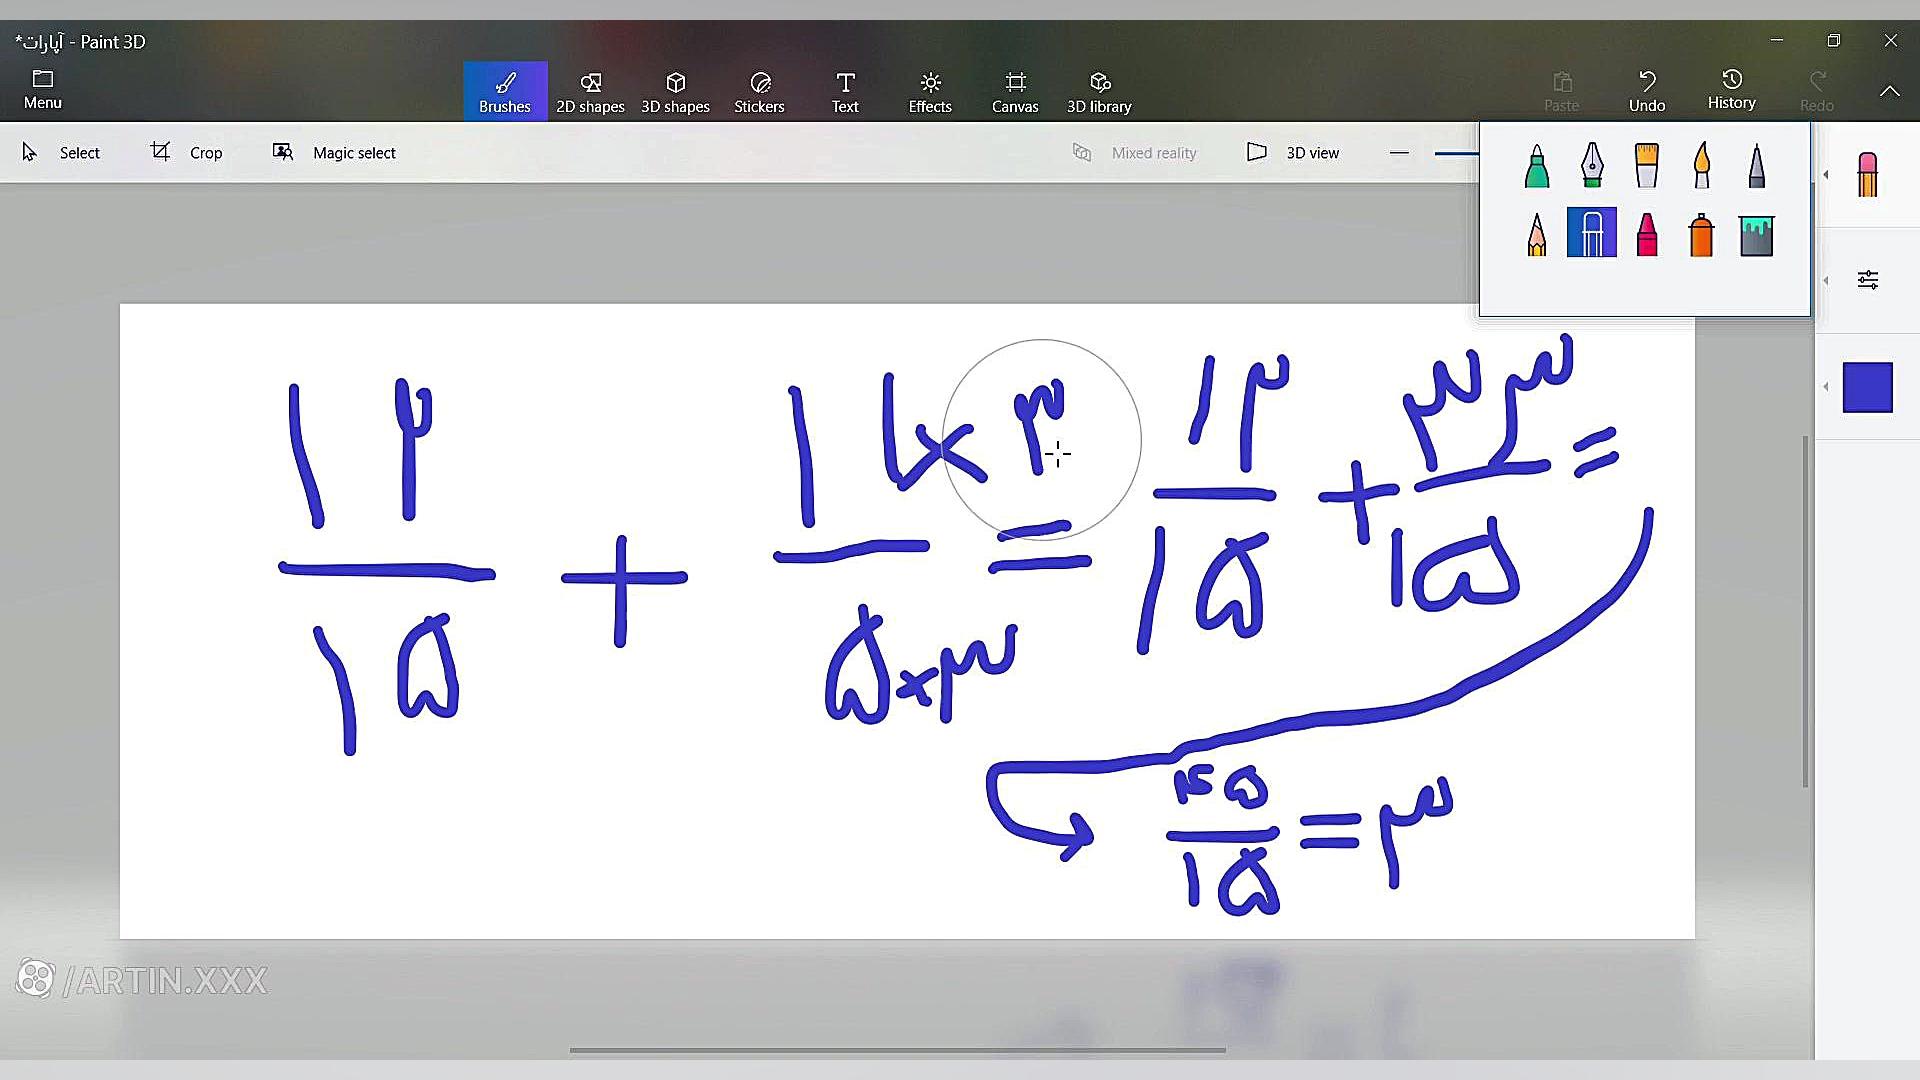 *آپارات - Paint 3D
Menu
Brushes 2D shapes 3D shapes Stickers Text Effects Canvas 3D library Paste Undo History Redo
Select Crop Magic select Mixed reality 3D view
۱۲/۱۵ + ۱۱×۳/۵×۳ = ۱۲/۱۵ + ۳۳/۱۵ =
۴۵/۱۵ = ۳
/ARTIN.XXX